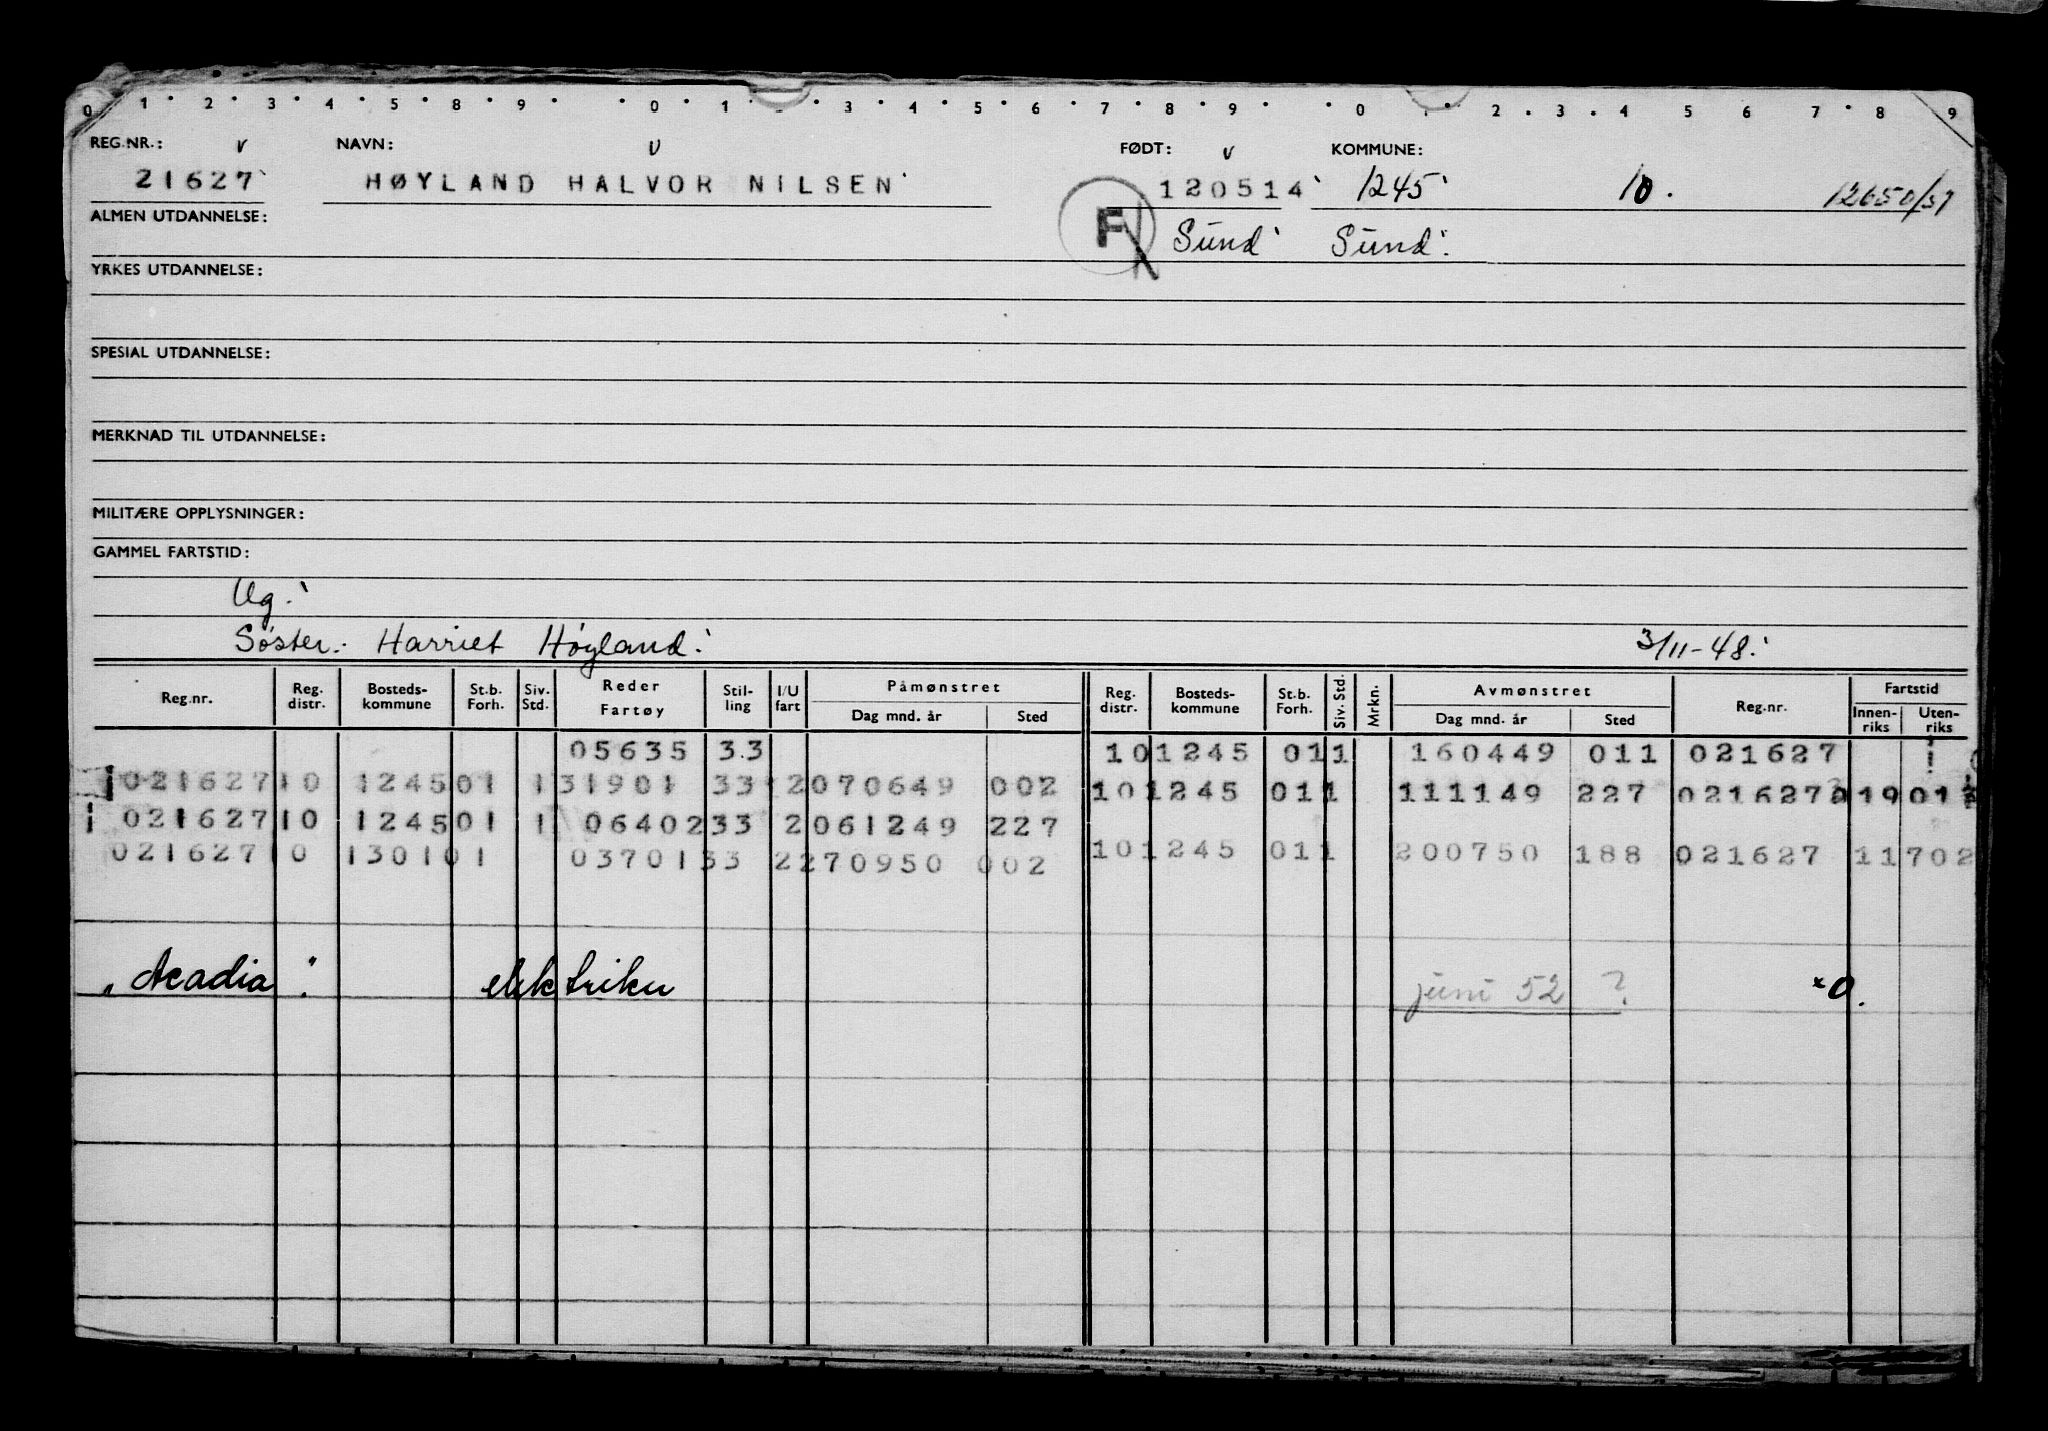 0 1 2 3 4 5 8 9 0 1 3 4 5 6 7 8 9 0 2 3 4 5 6 7 8 9
REG.NR.: v NAVN: v FØDT: v KOMMUNE:
21627 HØYLAND HALVOR NILSEN 120514 1245 10. 12650/51
ALMEN UTDANNELSE: F Sund Sund.
YRKES UTDANNELSE:
SPESIAL UTDANNELSE:
MERKNAD TIL UTDANNELSE:
MILITÆRE OPPLYSNINGER:
GAMMEL FARTSTID:
Ug.
Søster: Harriet Høyland. 3/11-48.
Reg.nr. Reg. distr. Bosteds-kommune St.b. Forh. Siv. Std. Reder Fartøy Stil-ling I/U fart Påmønstret Dag mnd. år Sted Reg. distr. Bosteds-kommune St.b. Forh. Siv. Std. Mrkn. Avmønstret Dag mnd. år Sted Reg.nr. Fartstid Innen-riks Uten-riks
05635 33 10 1245 01 1 160449 011 021627
021627 10 1245 01 1 31901 33 2 070649 002 10 1245 01 1 111149 227 021627
021627 10 1245 01 1 06402 33 2 061249 227
021627 10 1301 01 03701 33 2 270950 002 10 1245 01 1 200750 188 021627 11702
"Acadia" elektriker juni 52 ? *0.